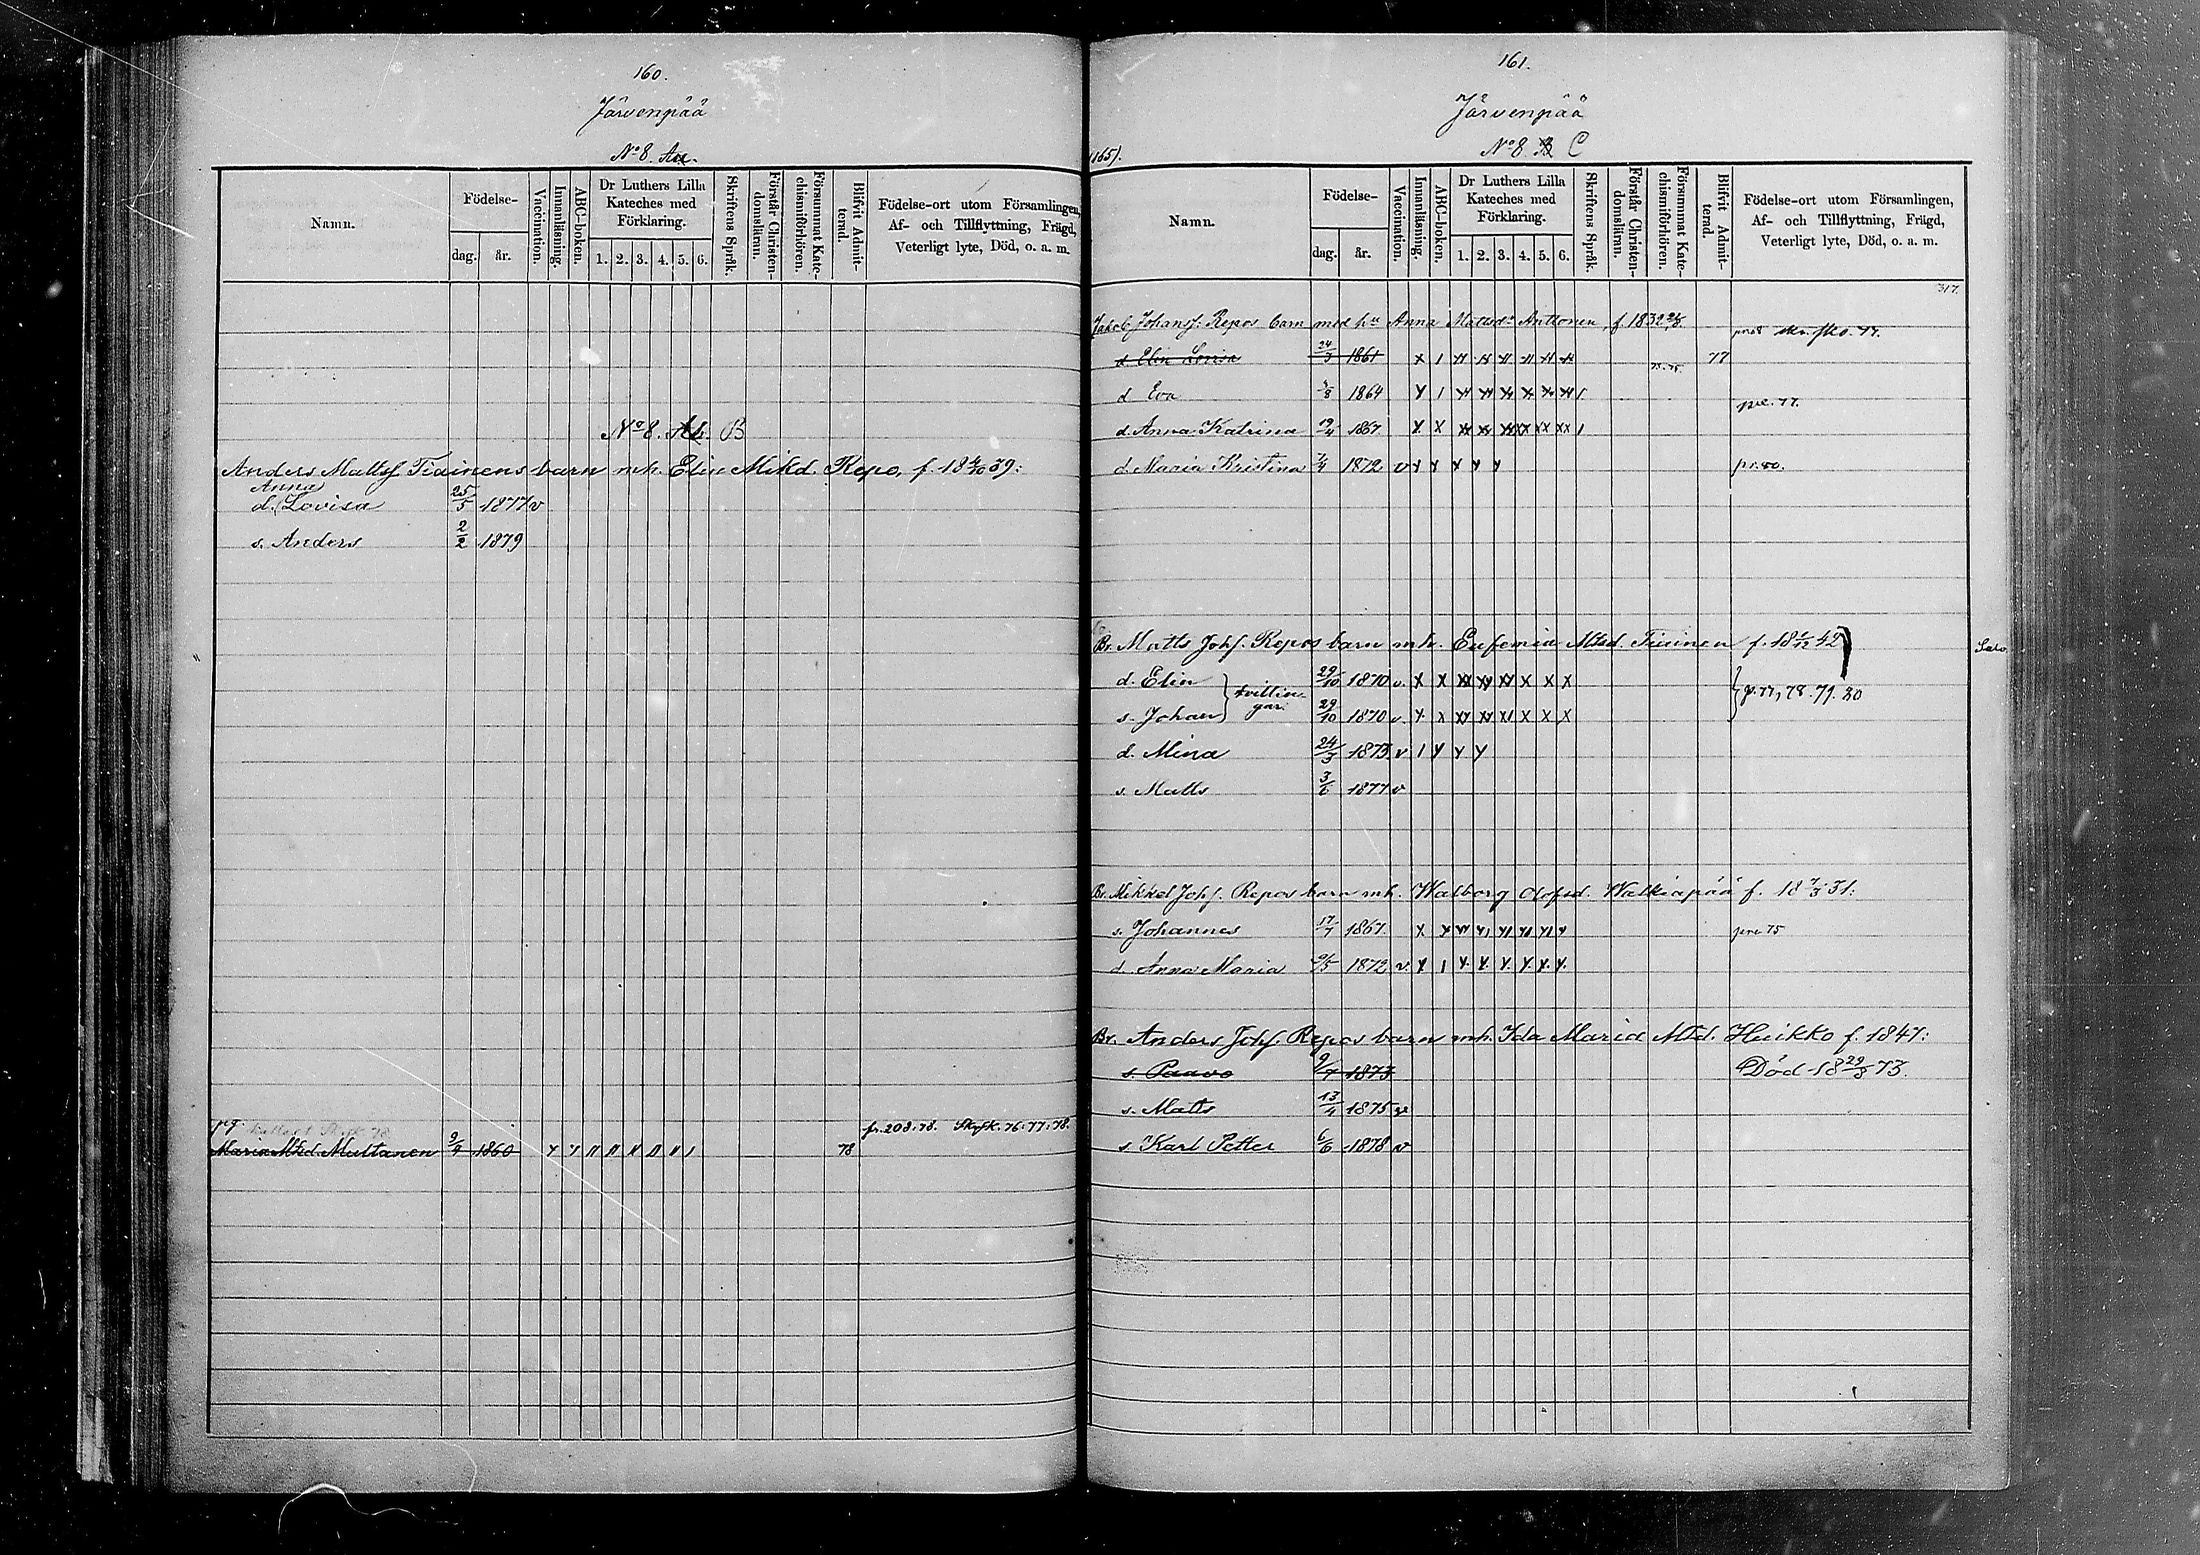 160.
Järvenpää
No 8.
Namn.
Födelse-
dag.
år.
Vaccination.
Innanläsning.
ABC-boken.
Dr Luthers Lilla
Kateches med
Förklaring.
1. 2. 3. 4. 5. 6.
Skriftens Språk.
Förstår Christen-
domsläran.
Försummat Kate-
chismiförhören.
Blifvit Admit-
terad.
Födelse-ort utom Församlingen,
Af- och Tillflyttning, Frägd,
Veterligt lyte, Död, o. a. m.
No 8. B
Anders Mattsf Tiainens barn mh. Elin Mikd. Repo, f. 18 4/10 39:
Anna
d. Lovisa 25/5 1877 v
s. Anders 2/2 1879
pg.
fr. 208. 78. Skrfsk. 76. 77. 78.
Maria Mtsd. Multanen 9/4 1860 78
161.
Järvenpää
No 8. C
165).
Namn.
Födelse-
dag.
år.
Vaccination.
Innanläsning.
ABC-boken.
Dr Luthers Lilla
Kateches med
Förklaring.
1. 2. 3. 4. 5. 6.
Skriftens Språk.
Förstår Christen-
domsläran.
Försummat Kate-
chismiförhören.
Blifvit Admit-
terad.
Födelse-ort utom Församlingen,
Af- och Tillflyttning, Frägd,
Veterligt lyte, Död, o. a. m.
317.
Jakob Johansf. Repos barn med hu Anna Mattsdr Anttonen, f. 1832
d. Elin Lovisa 24/3 1861 x 1 77
d Eva 1864
d. Anna Katrina 19/4 1867 x x
d. Maria Kristina 7/4 1872 v
pr. 80.
Br. Matts Johf. Repos barn mh. Eufemia Mtsd. Tiainen f. 18 1/12 42
d. Elin 29/10 1870 v. x x
tvillin-
gar.
s. Johan 29/10 1870 v.
77, 78. 79. 80
d. Mina 24/3 1873 v
s. Matts 3/6 1877 v
Br. Mikkel Johf. Repos barn mh. Walborg Olofsd. Walkiapää f. 18 7/3 31:
s. Johannes 17/7 1867 pre 75
d Anna Maria 1872 v.
Br. Anders Johf. Repos barn mh. Ida Maria Mtd. Huikko f. 1847:
s. Paavo 9/7 1873 Död 18 29/8 73.
s. Matts 13/4 1875 v
s. Karl Petter 6/6 1878 v